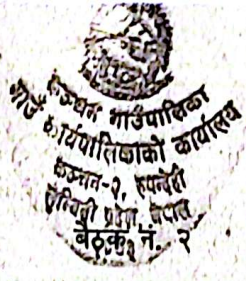 कञ्चन गाउँपालिका
गाउँ कार्यपालिकाको कार्यालय
कञ्चन-२, रुपन्देही
लुम्बिनी प्रदेश, नेपाल
बैठक नं. २